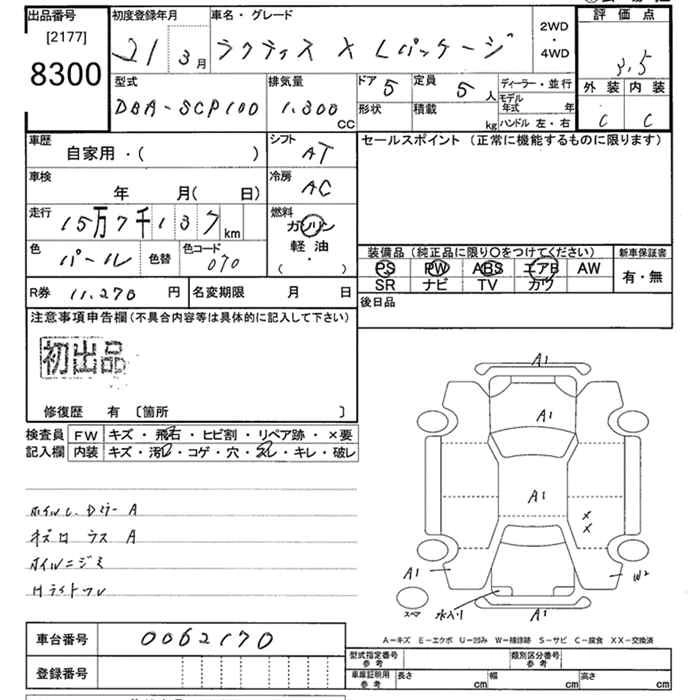 出品番号
[2177]
8300
初度登録年月
21 3月
車名・グレード
ラクティス X Lパッケージ
2WD
・
4WD
評価点
3.5
外装 内装
C C
型式
DBA-SCP100
排気量
1.300
CC
ドア 5
形状
定員 5 人
積載 kg
ディーラー・並行
モデル年式 年
ハンドル 左・右
車歴
自家用・( )
シフト
AT
セールスポイント (正常に機能するものに限ります)
車検
年 月( 日)
冷房
AC
走行
15万7千137km
燃料
ガソリン
軽油
( ・ )
色
パール
色替
色コード
070
装備品 (純正品に限り○をつけてください)
PS PW ABS エアB AW
SR ナビ TV カワ
新車保証書
有・無
R券 11.270 円
名変期限 月 日
後日品
注意事項申告欄 (不具合内容等は具体的に記入して下さい)
初出品
修復歴 有 〔箇所 〕
検査員記入欄
FW キズ・飛石・ヒビ割・リペア跡・×要
内装 キズ・汚レ・コゲ・穴・スレ・キレ・破レ
ホイルC.Dミラー A
キズロ ラス A
ホイルニジミ
Hライトクレ
A1
A1
A1
X
X
A1
W2
スペア
水入り
A1
A-キズ E-エクボ U-凹み W-補修跡 S-サビ C-腐食 XX-交換済
車台番号 0062170
登録番号
型式指定番号
参考
類別区分番号
参考
車庫証明用
参考
長さ cm
幅 cm
高さ cm